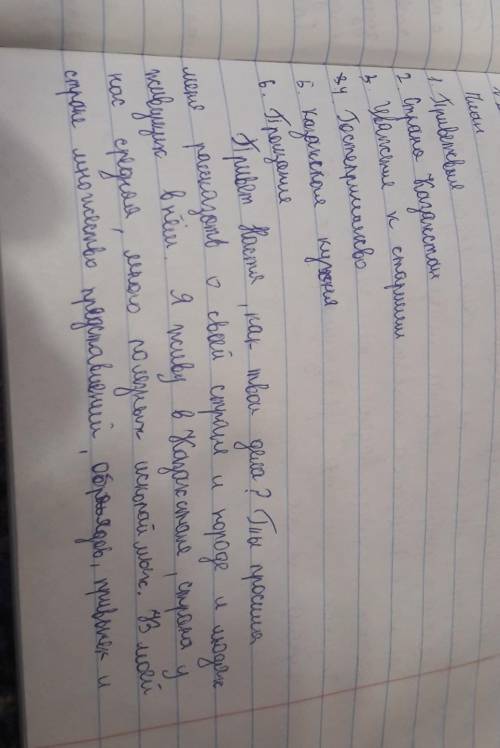 План
1. Приветвие
2. Страна Казахстан
3. Уважение к старшим
4. Гостеприимсво
5. Казахская кухня
6. Прощание
Привет Настя, как твои дела? Ты просила
меня рассказать о своей стране и народе и людях
живущих в нём. Я живу в Казахстане, страна у
нас средняя, много полезных ископаймых. Уз моей
стране множество представлений, обрядов, привычек и